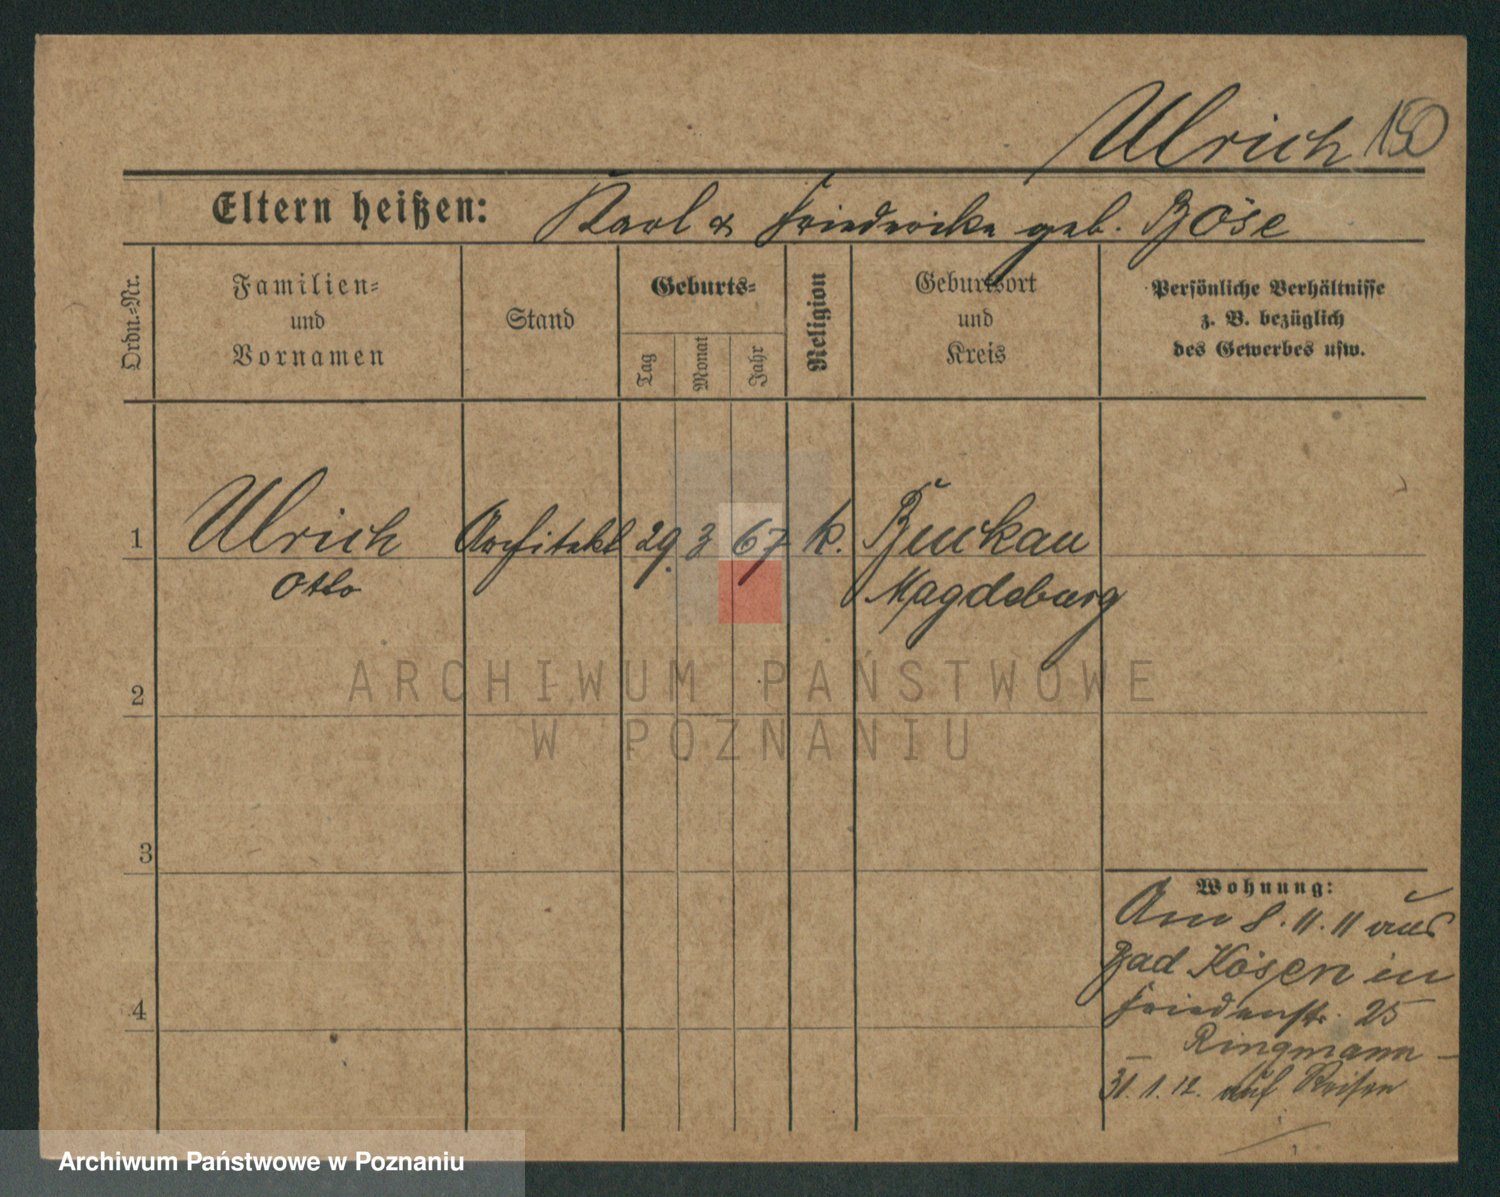 Ulrich 150
Eltern heißen: Karl & Friederike geb. Böse
Ordn.-Nr.
Familien-
und
Vornamen
Stand
Geburts-
Tag
Monat
Jahr
Religion
Geburtsort
und
Kreis
Persönliche Verhältnisse
z. B. bezüglich
des Gewerbes usw.
1 Ulrich Architekt 29. 3 67 k. Buckau
Otto Magdeburg
2
3
4
Wohnung:
Am 8.11.11 aus
Bad Kösen in
Friedenstr. 25
– Ringmann –
31.1.12. auf Reisen
ARCHIWUM PAŃSTWOWE
W POZNANIU
Archiwum Państwowe w Poznaniu